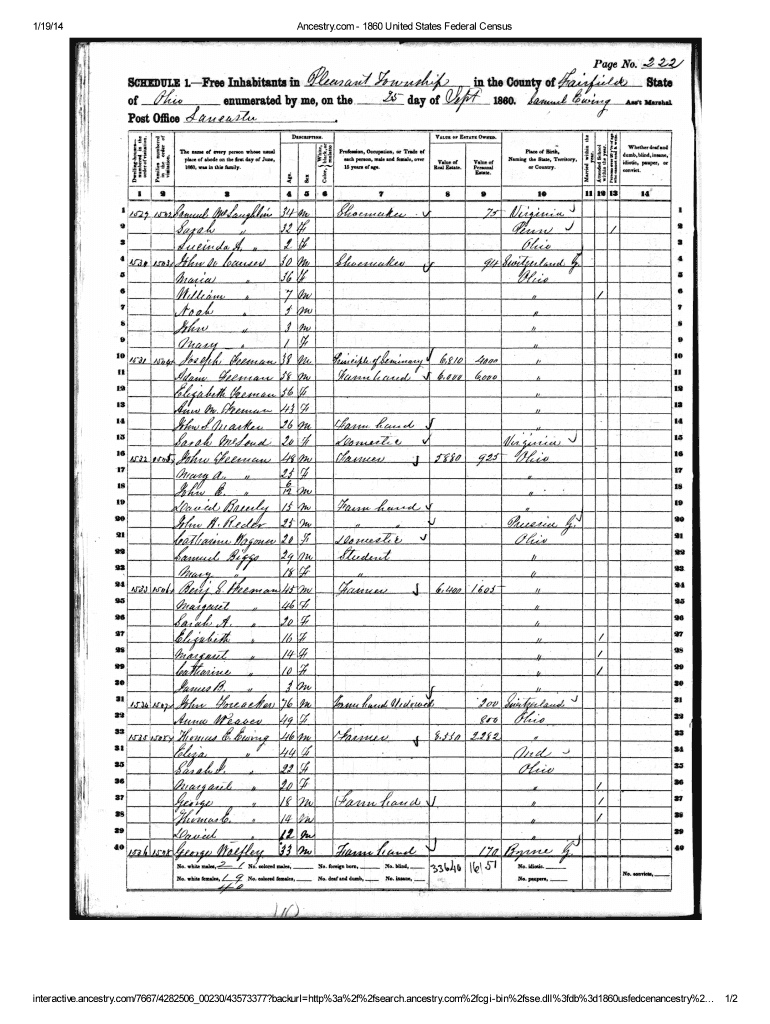 1/19/14 Ancestry.com - 1860 United States Federal Census
Page No. 222
SCHEDULE 1.—Free Inhabitants in Pleasant Township in the County of Fairfield State
of Ohio enumerated by me, on the 25 day of Sept 1860. Samuel Ewing Ass't Marshal
Post Office Lancaster
DESCRIPTION. VALUE OF ESTATE OWNED.
The name of every person whose usual place of abode on the first day of June, 1860, was in this family. Age. Sex Profession, Occupation, or Trade of each person, male and female, over 15 years of age. Value of Real Estate. Value of Personal Estate. Place of Birth, Naming the State, Territory, or Country. Married within the year. Attended School within the year. Whether deaf and dumb, blind, insane, idiotic, pauper, or convict.
1 2 3 4 5 6 7 8 9 10 11 12 13 14
1 1529 Samuel McLaughlin 34 M Shoemaker 75 Virginia 1
2 Sarah " 32 F Penn 1 2
3 Lucinda A. " 2 F Ohio 3
4 1530 John 30 M Shoemaker 94 Switzerland 4
5 Maria " 36 F Ohio 5
6 William " 7 M " 1 6
7 Noah " 5 M " 7
8 John " 3 M " 8
9 Mary " 1 F " 9
10 1531 Joseph Feeman 38 M Principle of Seminary 6,810 4000 " 10
11 Adam Feeman 58 M Farm hand 6,000 6,000 " 11
12 Elizabeth Feeman 56 F 12
13 Ann M. Feeman 43 F " 13
14 John S Marker 26 M Farm hand " 14
15 Sarah McLoud 20 F Domestic Virginia 15
16 1532 John Feeman 48 M Farmer 5880 925 Ohio 16
17 Mary A. " 25 F " 17
18 John E. " 6/12 M " 18
19 David 15 M Farm hand " 19
20 John H. Reder 25 M " " Prussia 20
21 Catharine Wagoner 20 F Domestic Ohio 21
22 Samuel Biggs 29 M Student " 22
23 Mary " 18 F " " 23
24 1533 Benj S. Feeman 45 M Farmer 6,400 1605 " 24
25 Margaret " 46 F 25
26 Sarah A. " 20 F " 26
27 Elizabeth " 16 F " 1 27
28 Margaret " 14 F " 1 28
29 Catharine " 10 F " 1 29
30 James B. " 3 M " 30
31 1534 John 76 M Farm hand 200 Switzerland 31
32 Anna Weaver 49 F 800 Ohio 32
33 1535 Thomas E. Ewing 46 M Farmer 8,550 2,282 " 33
34 Eliza " 44 F Md 34
35 Sarah J. " 22 F Ohio 35
36 Margaret " 20 F " 1 36
37 George " 18 M Farm hand " 1 37
38 Thomas E. " 14 M " 1 38
39 David " 12 M " 39
40 1536 George 33 M Farm hand 170 40
No. white males, 21 No. colored males, No. foreign born, No. blind, 33640 16151 No. idiotic. No. convicts,
No. white females, 19 No. colored females, No. deaf and dumb, No. insane, No. paupers,
40
interactive.ancestry.com/7667/4282506_00230/43573377?backurl=http%3a%2f%2fsearch.ancestry.com%2fcgi-bin%2fsse.dll%3fdb%3d1860usfedcenancestry%2… 1/2